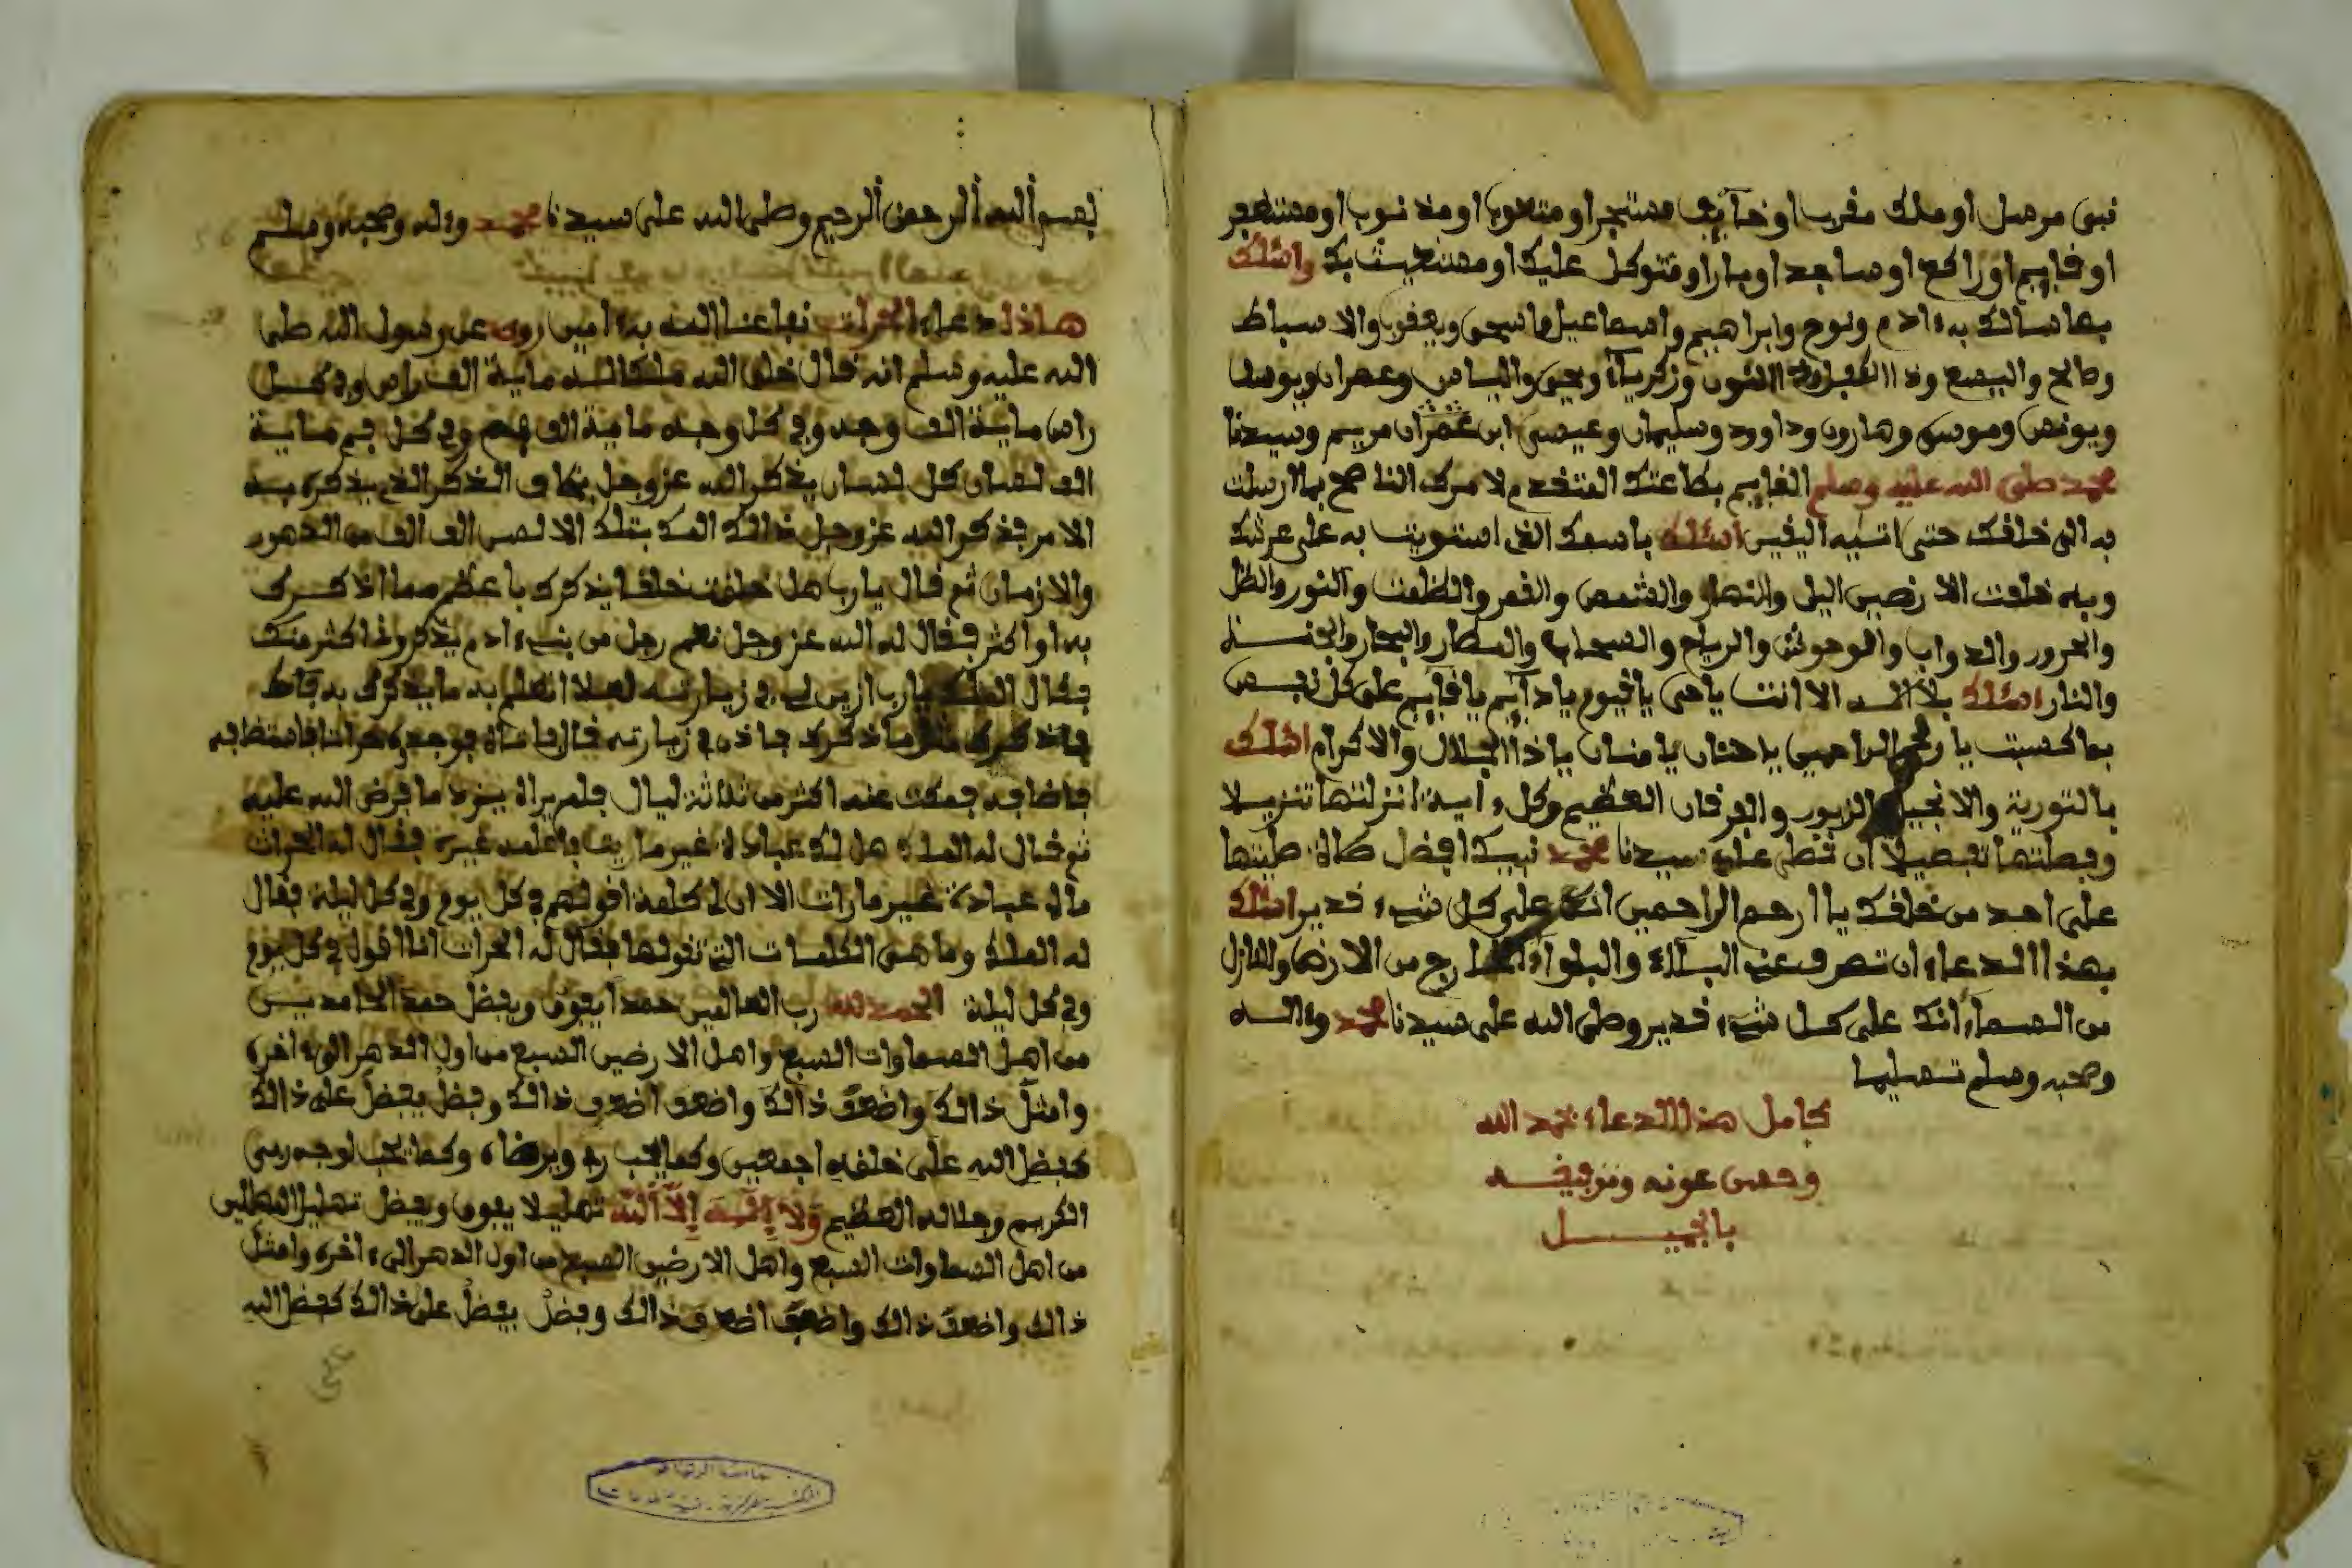 نبى مرسل او ملك مقرب او خآيف مستجير او متعوذ او مذنوب او مستغفر
او فايم او راكع او ساجد او بارا او متوكل عليك او مستغيث بك واسئلك
بما سالك به ءادم ونوح وابراهيم واسماعيل واسحى ويعفوب والاسباط
وصالح واليسع وذا الكفل وذا النون وزكرياء ويحيى والياس وعمران ويوسف
ويونس وموسى وهارون وداوود وسليمان وعيسى ابن عمران مريم وسيدنا
محمد صلى الله عليه وسلم الفايم بطاعتك المتفدم لامرك الناصح بما ارسلت
به الى خلفك حتى اتيه اليفين اسئلك باسمك الذى استويت به على عرشك
وبه خلفت الارضين اليل والنهار والشمس والفمر والظلمت والنور والظل
والحرور والدواب والوحوش والرياح والسحاب والمطار والبحار والجنــة
والنار اسئلك بلا اله الا انت ياحى يافيوم يا دآيم يا فآيم على كل نفــس
بما كسبت يا رحم الراحمين ياحنان يا منان يا ذا الجلال والاكرام اسئلك
بالتورية والانجيل والزبور والفرفان العظيم وكل ءاية انزلتها تنزيــلا
وفصلتها تفصيلا ان تصلى على سيدنا محمد نبيك افضل صلاة صليتها
على احد من خلفك يا ارحم الراحمين انك على كل شىء فدير اسئلك
بهذا الدعاء ان تصرف عنى البلاء والبلواء الخارج من الارض والنازل
من السماء انك على كــل شىء فدير وصلى الله على سيدنا محمد وءالــه
وصحبه وسلم تسليما
كامل هذا الدعاء بحمد الله
وحسن عونه وتوفيفــه
بالجميــــل
بسم الله الرحمن الرحيم وصلى الله على سيدنا محمد وءله وصحبه وسلم
هاذا دعاء الحراث نفاعنا الله به ءامين روى عن رسول الله صلى
الله عليه وسلم انه فال خلق الله ملكا لــه ماية الف راس وفى كــل
راس مايــة الف وجه وفى كل وجه ماية الف فم وفى كل فم مايــة
الف لسان كل لسان يذكر الله عز وجل بخلاف الذكر الذى يذكره بــه
الامر فذكر الله عز وجل ذالك الملك بتلك الالسن الف الف من الدهور
والازمان ثم فال يارب هل خلفت خلفا يذكرك باعظم مما اذكــرك
به او اكثر ففال له الله عز وجل نعم رجل من بنىء ادم يذكرونى اكثر منك
ففال الملك يارب ازين لى فى زيارتــه لعلا اتعلم به ما يذكرك به فاط
فاذكرك مثل ما ذكرك فاذن فى زيارته فال فاتاه فوجده حراثا فاستظافه
فاضافه فمكث عنه اكثر من ثلاثة ليال فلم يراه يزد ما فرض الله عليه
ثم فال له الملك هل لك عبادة غير ما رايت فاعلمه غيره ففال له الحراث
مالى عبادة غير مارات الا ان لى كلمة افولهم فى كل يوم وفى كل ليلة ففال
له الملك وما هى الكلمات التى تفولها ففال له الحراث انا افول فى كل يوم
وفى كل ليلة الحمد لله رب العالمين حمدا يفوق ويفضل حمد الحامديــن
من اهل السماوات السبع واهل الارضين السبع من اول الدهر الىء اخره
وامثل ذالك واضعف ذالك واضعف اضعف ذالك وفضل يفضل على ذالك
كفضل الله على خلفه اجمعين وكما يحب ربى ويرضاه وكما يحب لوجه ربى
الكريم وجلاله العظيم ولا إله إلا الله تهليلا يفوق ويفضل تهليل المهللين
من اهل السماوات السبع واهل الارضين السبع من اول الدهر الىء اخره وامثل
ذالك واضعف ذالك واضعف اضعف ذالك وفضل يفضل على ذالك كفضل الله
على
جامعة الرياض